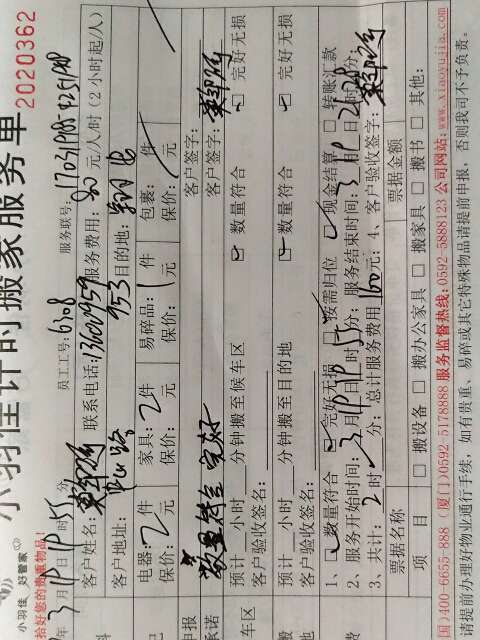 小羽佳 好管家
小羽佳计时搬家服务单
2020362
拾好您的贵重物品
员工工号: 6308 服务联号:
年3月19日19时55分
客户姓名: 联系电话: 服务费用: 80元/人/时（2小时起/人）
客户地址: 目的地:
电器: 2件 家具: 2件 易碎品: 1件 包裹: 件
保价: 元 保价: 元 保价: 元 保价: 元
申报 客户签字:
承诺 数量符合 完好 客户签字:
预计 小时 分钟搬至候车区 数量符合 完好无损
车区 客户验收签名:
预计 小时 分钟搬至目的地 数量符合 完好无损
地 客户验收签名:
1、 数量符合 完好无损 按需归位 现金结算 转账汇款
2、服务开始时间: 3月19日19时55分; 服务结束时间: 3月19日 时 分;
3、共计: 2时 分; 总计服务费用160元; 4、客户验收签字:
票据名称 票据金额
项 目 搬设备 搬办公家具 搬家具 搬书 其他:
国)400-6655-888 (厦门)0592-5178888 服务监督热线:0592-5888123 公司网站:www.xiaoyujia.com
请提前办理好物业通行手续, 如有贵重、易碎或其它特殊物品请提前申报, 否则我司不予负责。